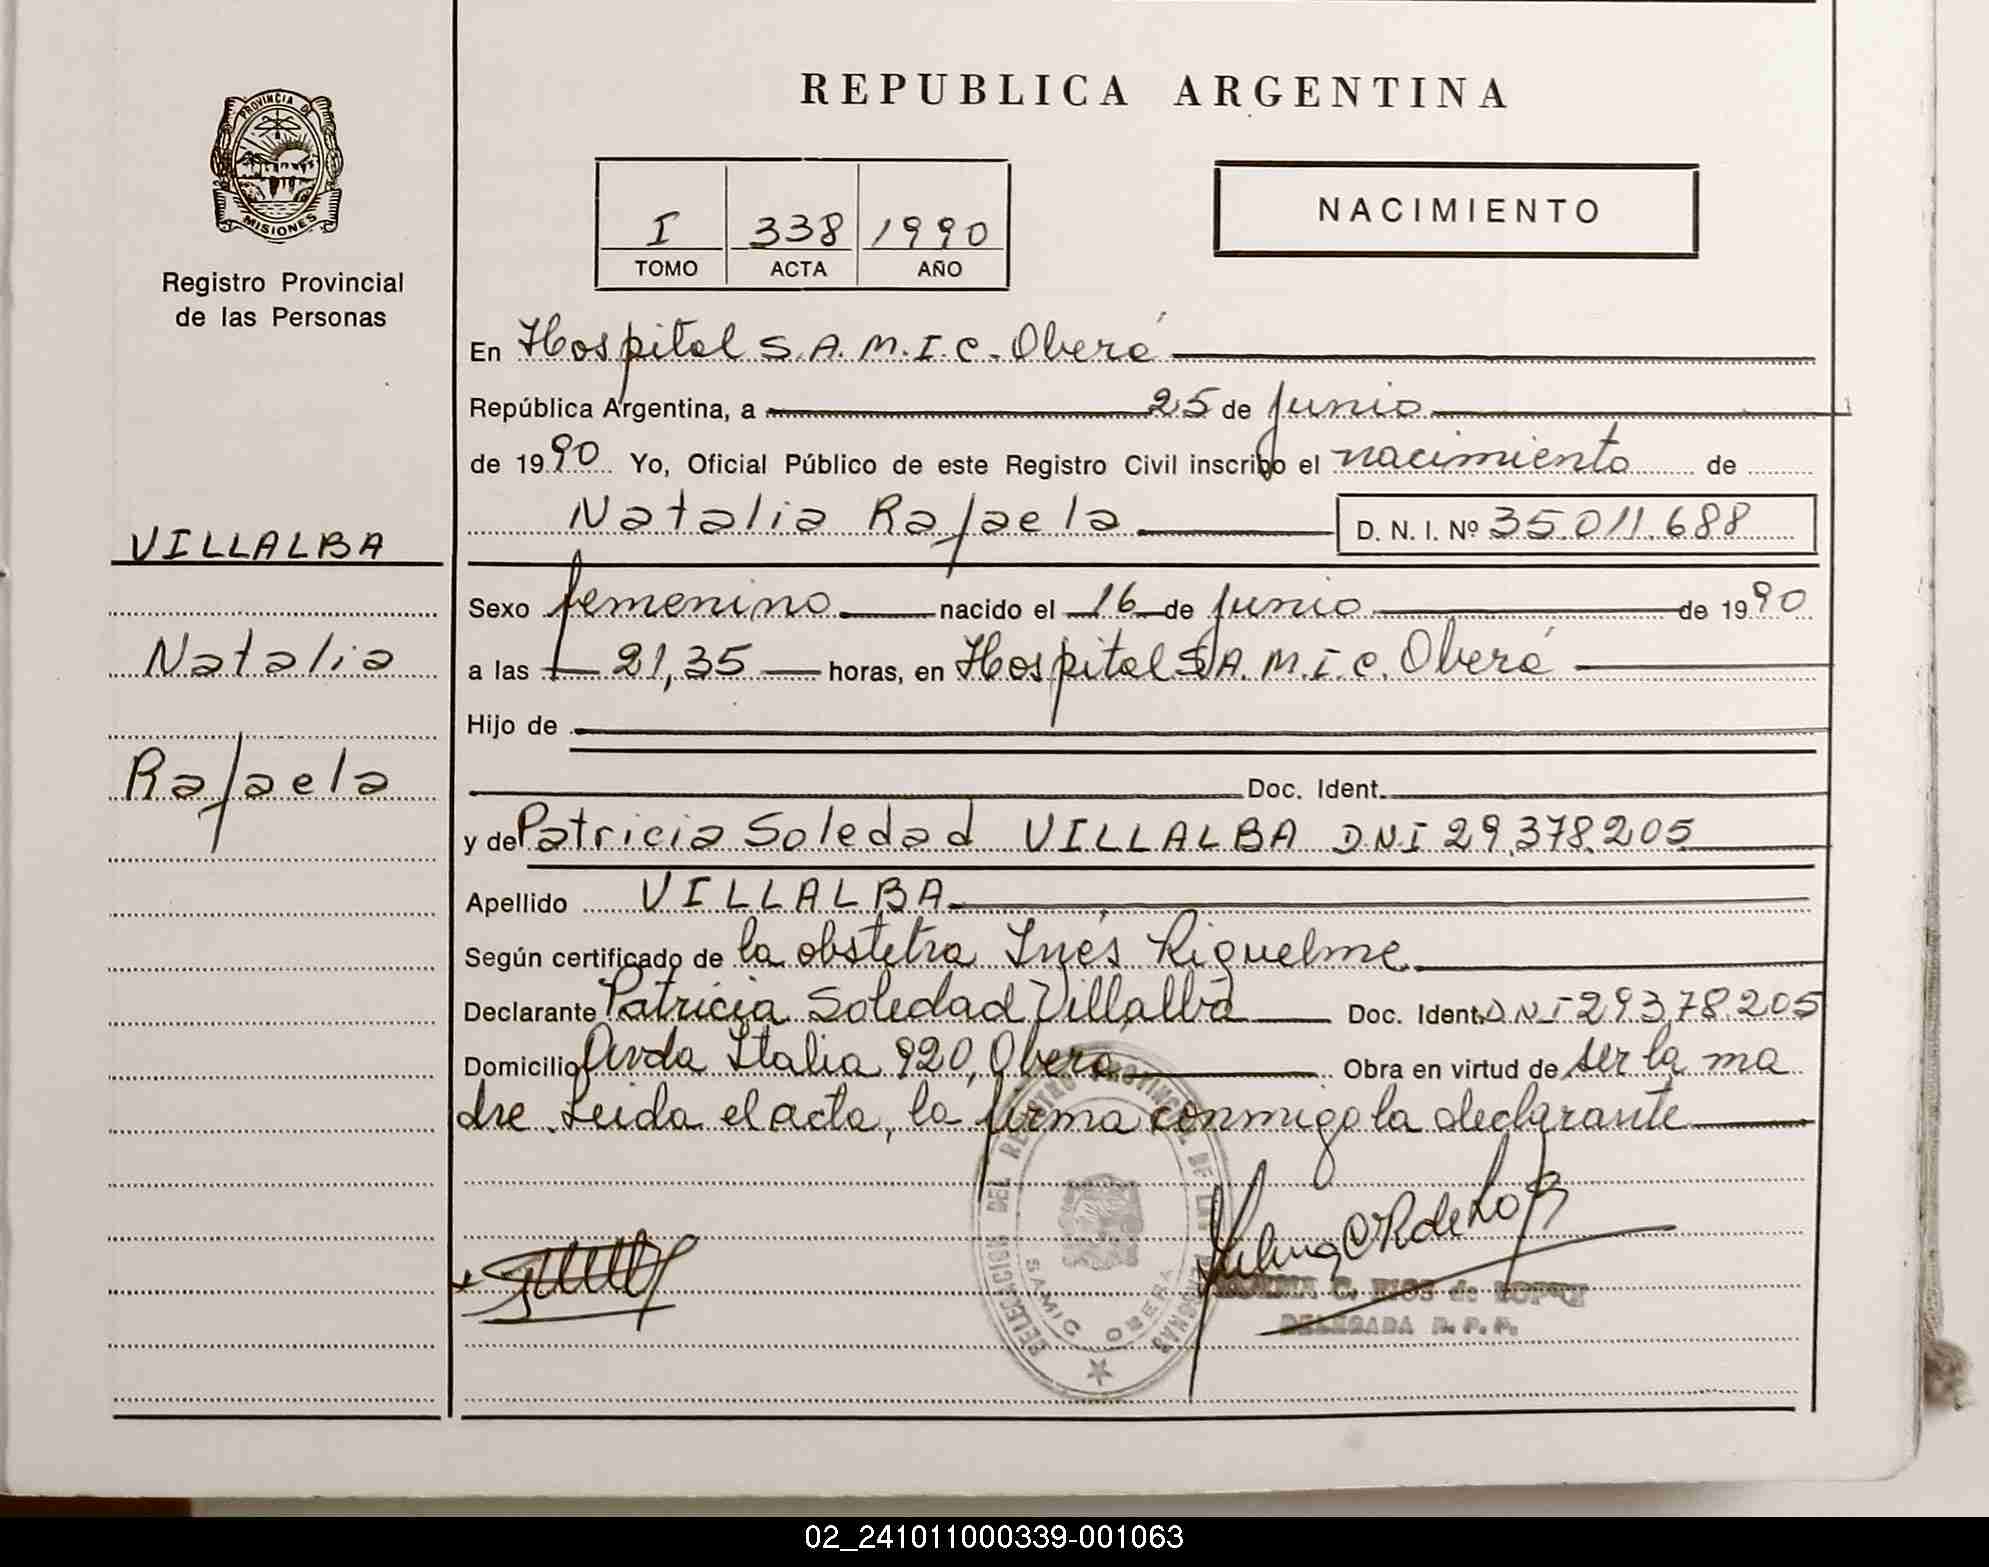 REPUBLICA ARGENTINA
PROVINCIA DE
MISIONES
Registro Provincial
de las Personas
I 338 1990
TOMO ACTA AÑO
NACIMIENTO
En Hospital S.A.M.I.C. Oberá
República Argentina, a 25 de junio
de 1990 Yo, Oficial Público de este Registro Civil inscribo el nacimiento de
Natalia Rafaela D. N. I. Nº 35.011.688
VILLALBA
Natalia
Rafaela
Sexo femenino nacido el 16 de junio de 1990
a las 21,35 horas, en Hospital S.A.M.I.C. Oberá
Hijo de
Doc. Ident.
y de Patricia Soledad VILLALBA DNI 29.378.205
Apellido VILLALBA
Según certificado de la obstetra Inés Riquelme
Declarante Patricia Soledad Villalba Doc. Ident. DNI 29378.205
Domicilio Avda Italia 920, Oberá Obra en virtud de ser la ma
dre. Leida el acta, la firma conmigo la declarante
DELEGACION DEL REGISTRO PROVINCIAL DE LAS PERSONAS
SAMIC OBERA
C. RIOS de LOPEZ
DELEGADA R. P. P.
02_241011000339-001063